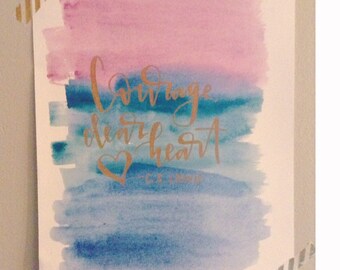 Courage
dear
heart
C.S. Lewis